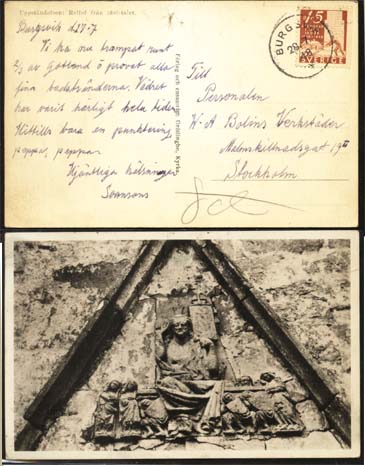 Uppståndelsen: Relief från 1200-talet.
Burgsvik d. 27-7
Vi ha nu trampat runt
2/3 av Gottland o provat alla
fina badstränderna. Vädret
har varit härligt hela tiden
Hittills bara en punktering
peppar, peppar.
Hjärtliga hälsningar
Svensons
Förlag och ensamrätt Grötlingbo, Kyrka.
BURGSVIK
75
SVERIGE
Till
Personalen
K-A Bolins Verkstäder
Malmskillnadsgat
Stockholm